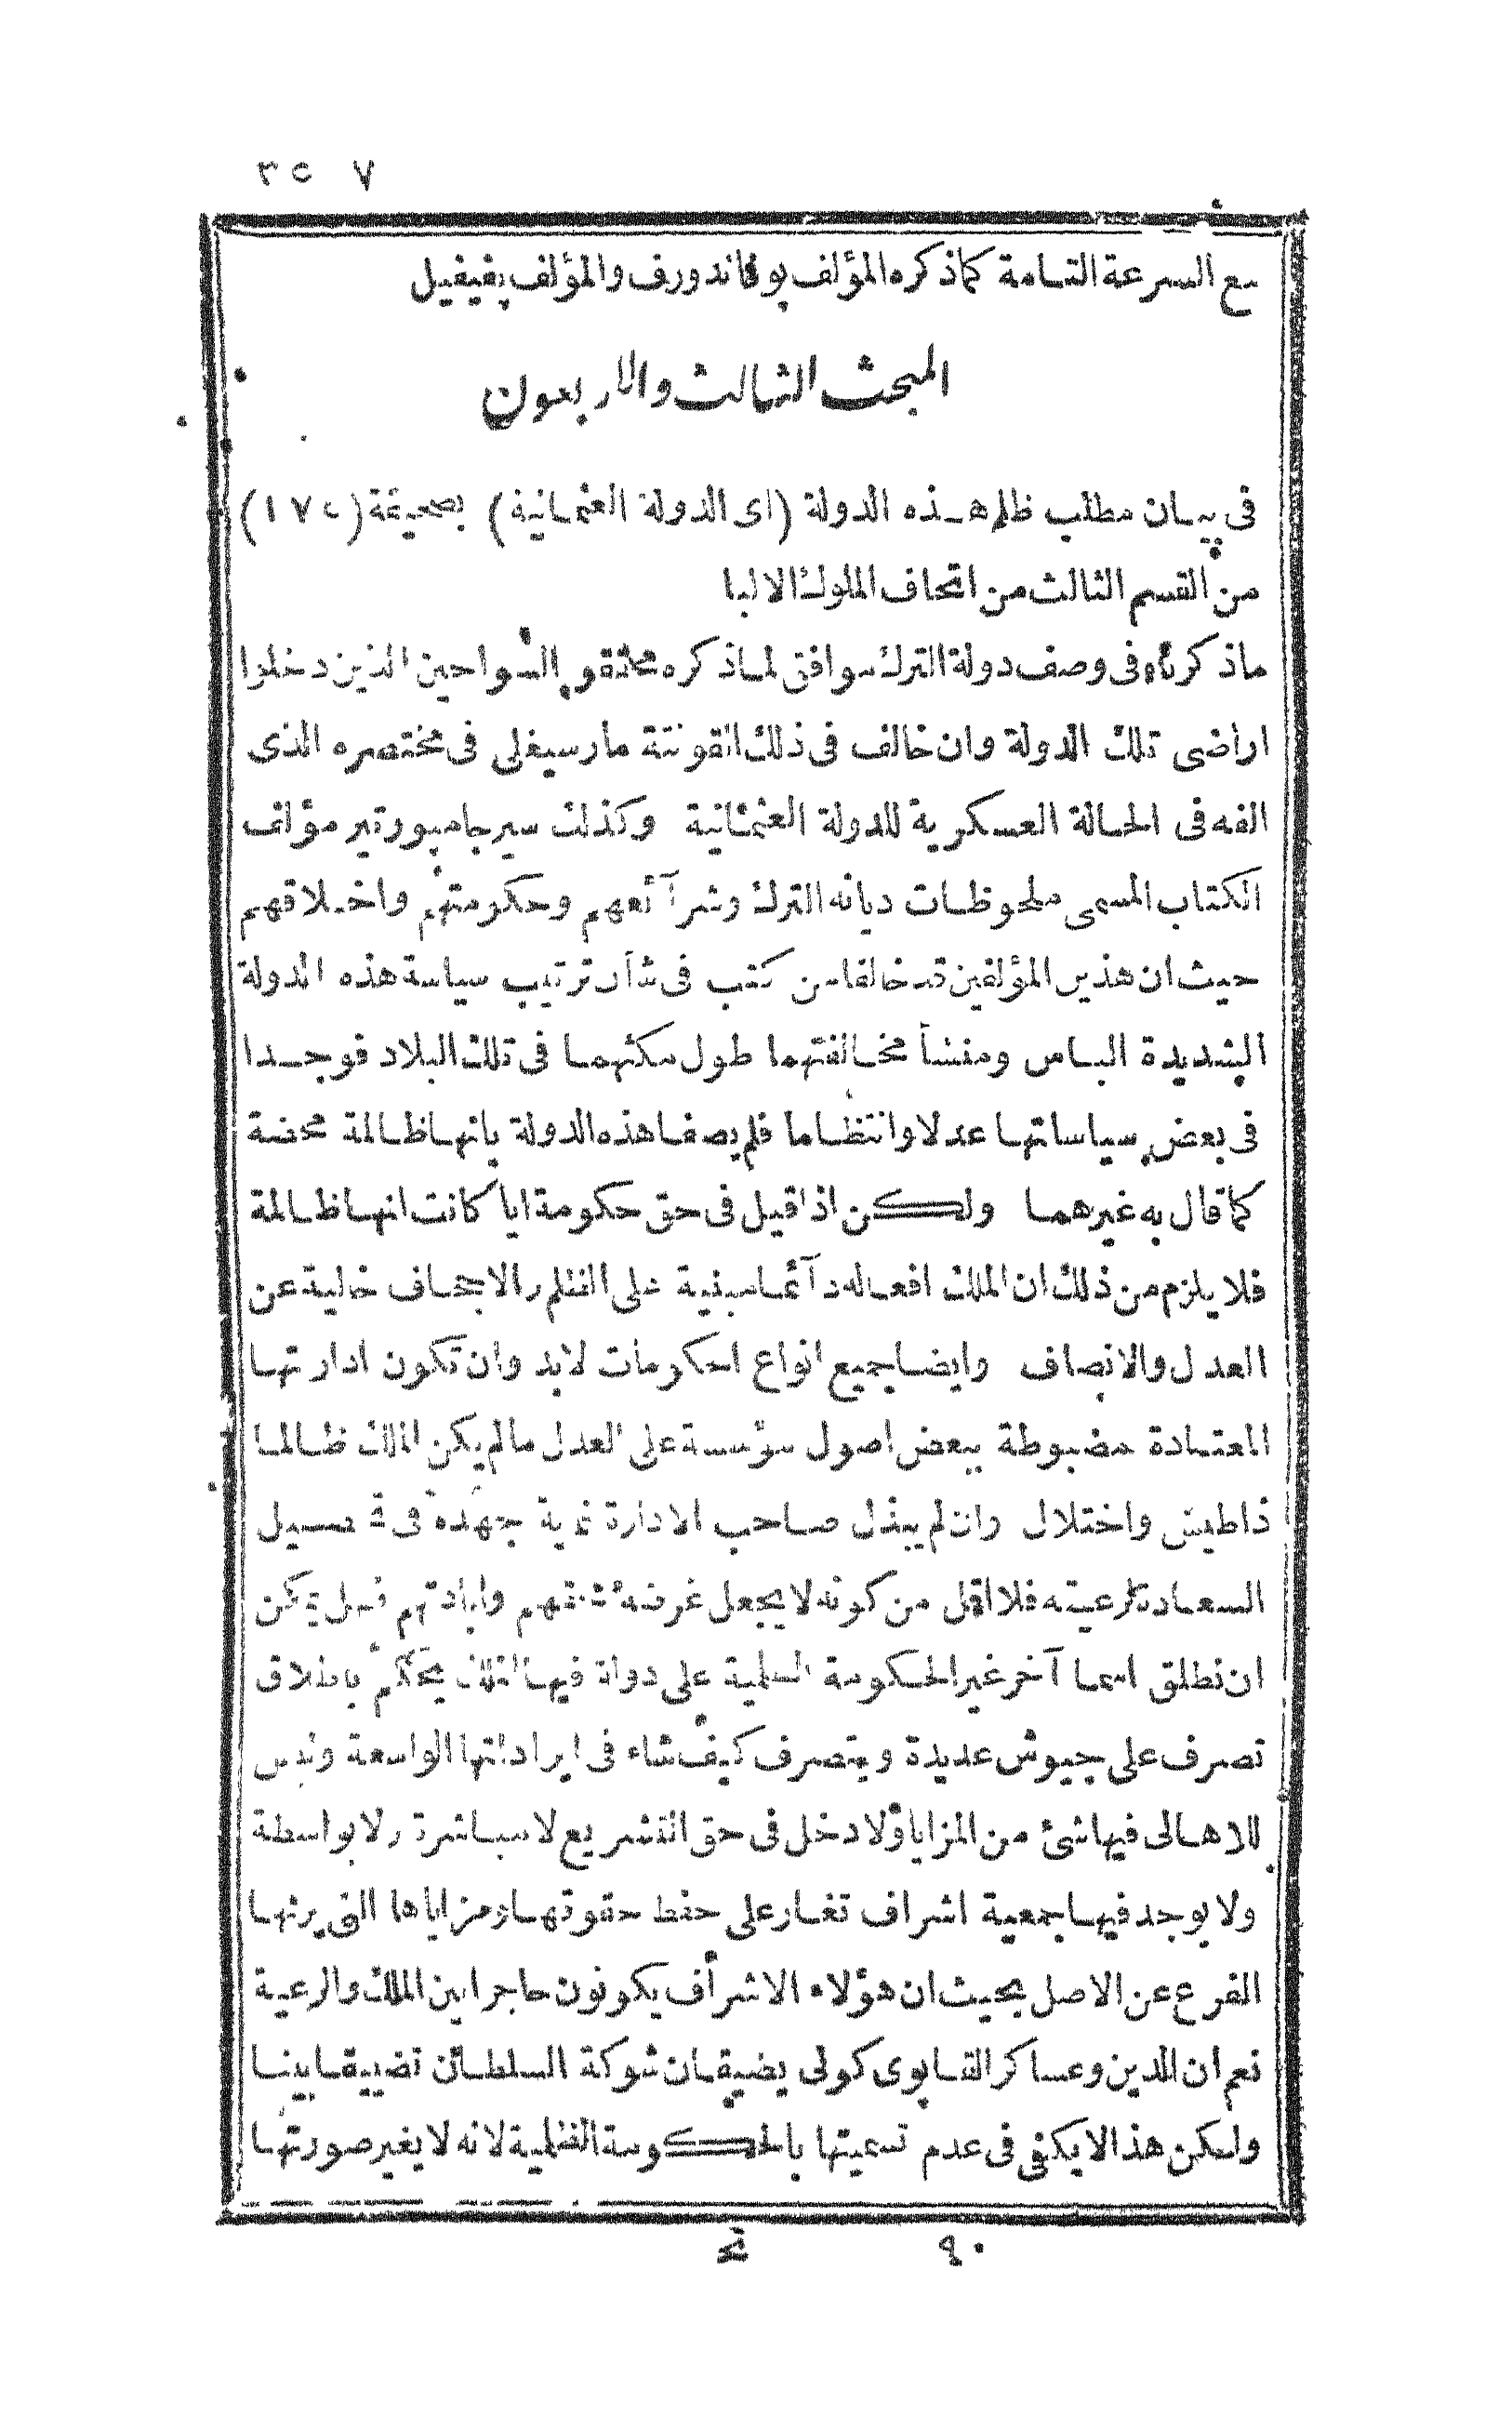 ٣٥٧
مع السرعة التامة كما ذكره المؤلف پوفاندورف والمؤلف پفيفيل
المبحث الثالث والاربعون
فى بيان مطلب ظلم هذه الدولة (اى الدولة العثمانية) بصحيفة (١٧٢)
من القسم الثالث من اتحاف الملوك الالبا
ماذكرناه فى وصف دولة الترك موافق لماذكره محققو السواحين الذين دخلوا
اراضى تلك الدولة وان خالف فى ذلك القونتة مارسيغلى فى مختصره الذى
الفه فى الحالة العسكرية للدولة العثمانية وكذلك سير جامپورتير مؤلف
الكتاب المسمى ملحوظات ديانه الترك وشرآئعهم وحكومتهم واخلاقهم
حيث ان هذين المؤلفين قد خالفا من كتب فى شأن ترتيب سياسة هذه الدولة
الشديدة الباس ومنشأ مخالفتهما طول مكثهما فى تلك البلاد فوجدا
فى بعض سياساتها عدلا وانتظاما فلم يصفا هذه الدولة بانها ظالمة محضة
كما قال به غيرهما ولكن اذا قيل فى حق حكومة ايا كانت انها ظالمة
فلا يلزم من ذلك ان الملك افعاله دآئما مبنية على الظلم والاجحاف خالية عن
العدل والانصاف وايضا جميع انواع الحكومات لابد وان تكون ادارتها
المعتادة مضبوطة ببعض اصول مؤسسة على العدل مالم يكن الملك ظالما
ذاطيش واختلال وان لم يبذل صاحب الادارة غاية جهده فى تحصيل
السعادة لرعيته فلا اقل من كونه لا يجعل غرضه شنقهم وابادتهم فهل يمكن
ان نطلق اسما آخر غير الحكومة الظلمية على دولة فيها الملك يحكم باطلاق
تصرف على جيوش عديدة ويتصرف كيف شاء فى ايراداتها الواسعة وليس
للاهالى فيها شئ من المزايا ولا دخل فى حق التشريع لا مباشرة ولا بواسطة
ولا يوجد فيها جمعية اشراف تغار على حفظ حقوقها ومزاياها التى يرثها
الفرع عن الاصل بحيث ان هؤلاء الاشراف يكونون حاجرا بين الملك والرعية
نعم ان الدين وعساكر القاپوى كولى يضيقان شوكة السلطان تضييقا بينا
ولكن هذا لا يكفى فى عدم تسميتها بالحكومة الظلمية لانه لا يغير صورتها
٩٠ تح